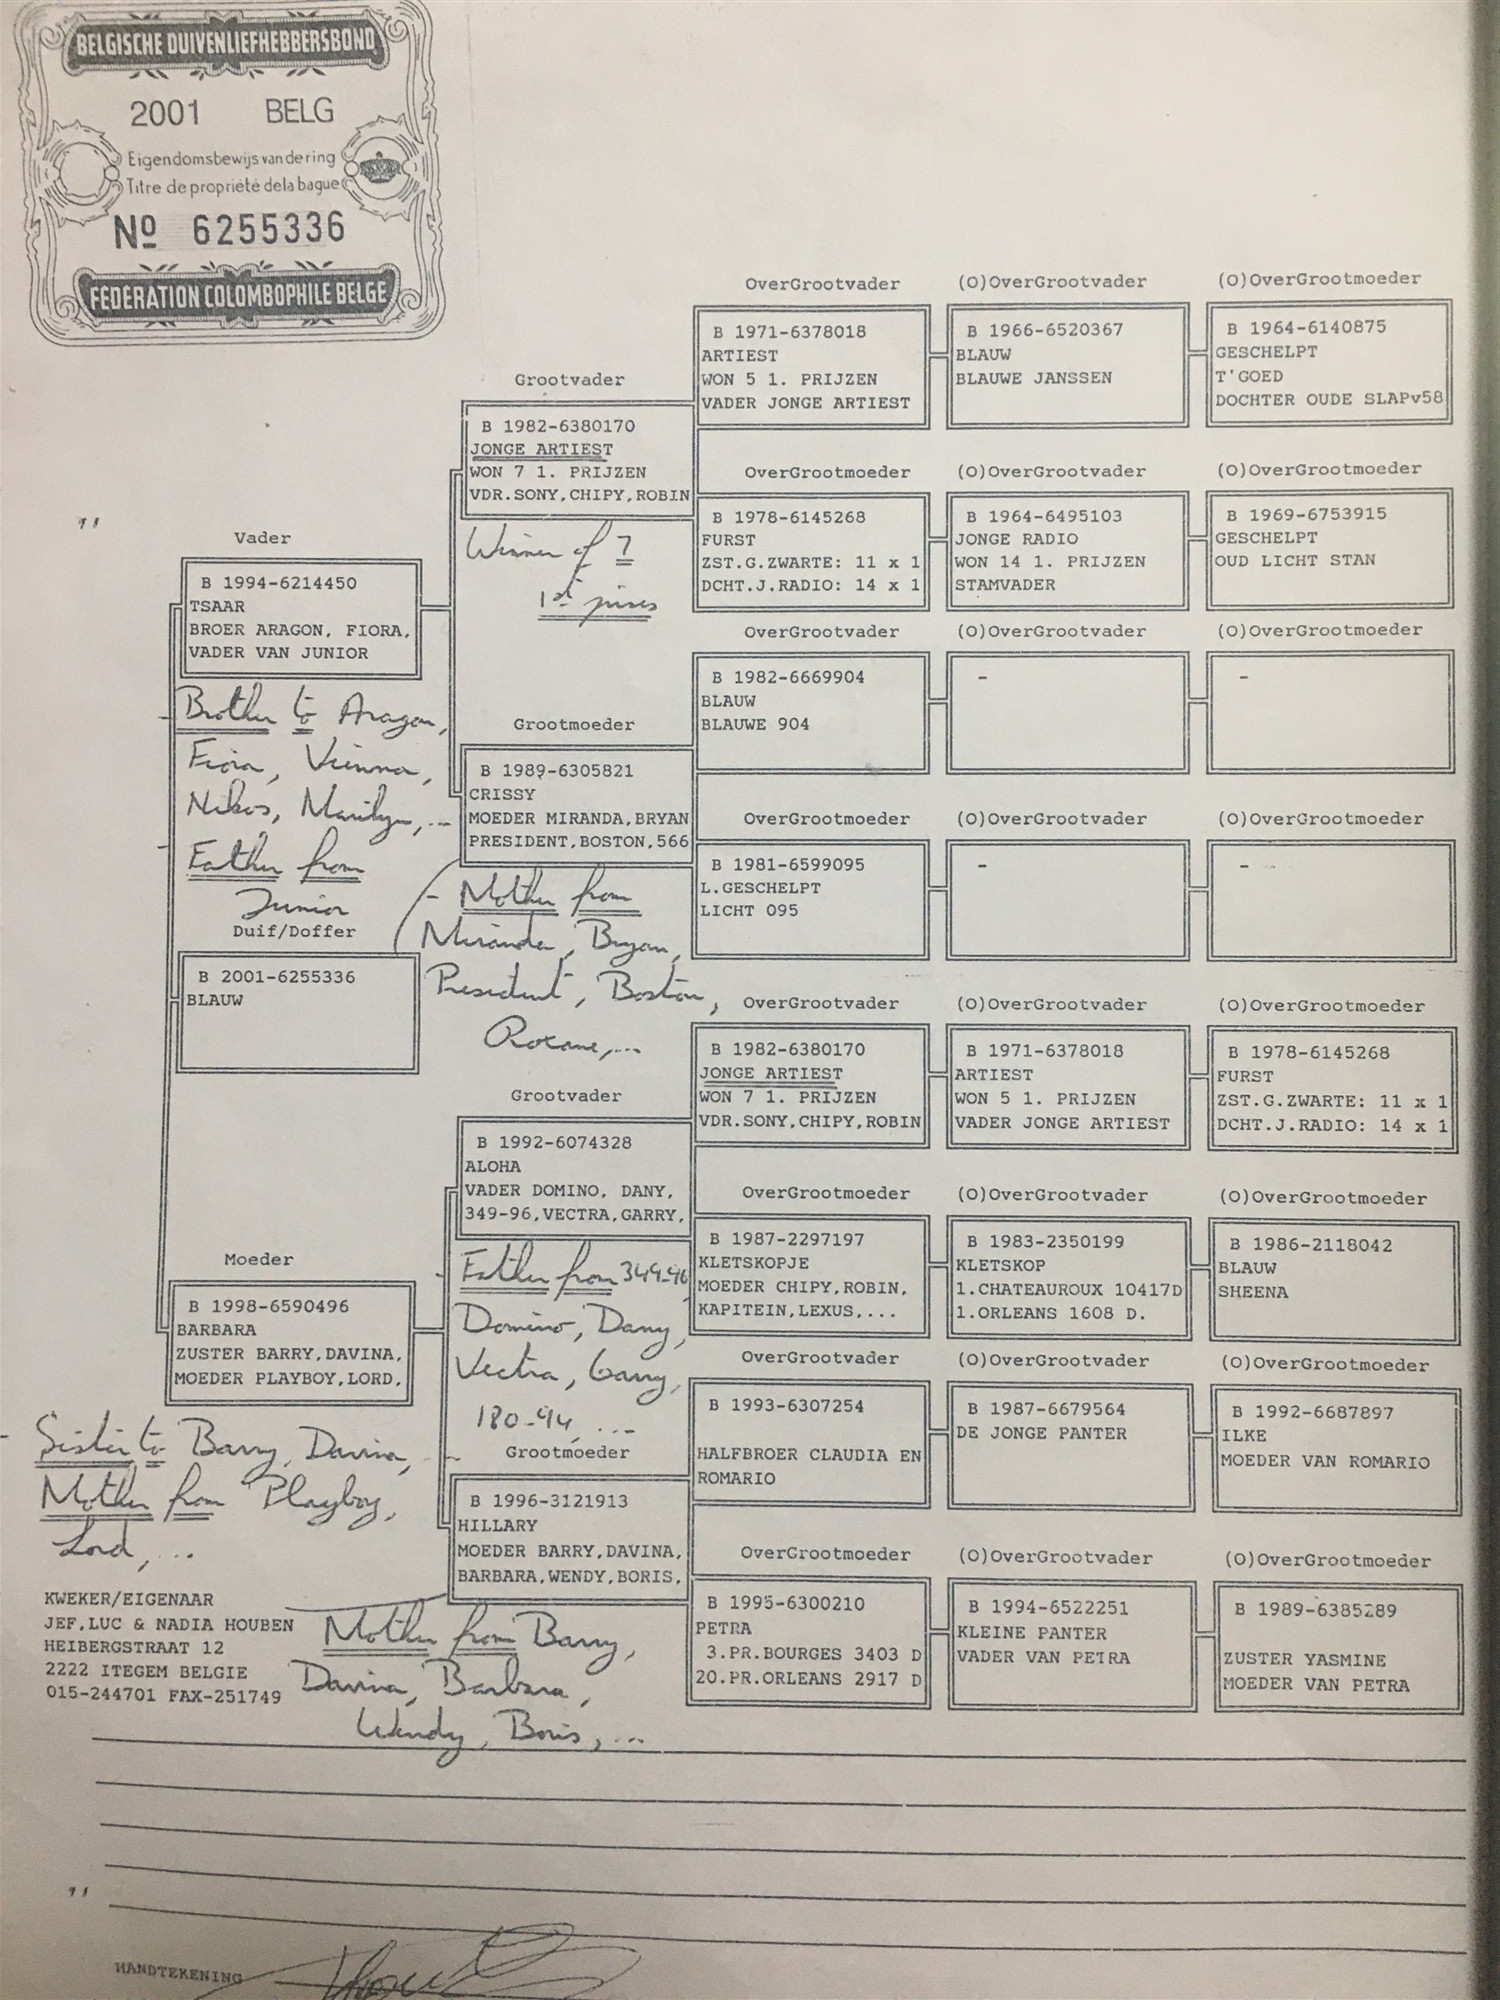 BELGISCHE DUIVENLIEFHEBBERSBOND
2001 BELG
Eigendomsbewijs van de ring
Titre de propriété de la bague
Nº 6255336
FEDERATION COLOMBOPHILE BELGE
Vader
B 1994-6214450
TSAAR
BROER ARAGON, FIORA,
VADER VAN JUNIOR
Brother to Aragon,
Fiora, Vienna,
Nikos, Marilyn,...
Father from
Junior
Duif/Doffer
B 2001-6255336
BLAUW
Moeder
B 1998-6590496
BARBARA
ZUSTER BARRY,DAVINA,
MOEDER PLAYBOY,LORD,
- Sister to Barry, Davina,
Mother from Playboy,
Lord,...
Grootvader
B 1982-6380170
JONGE ARTIEST
WON 7 1. PRIJZEN
VDR.SONY,CHIPY,ROBIN
Winner of 7
1st prizes
Grootmoeder
B 1989-6305821
CRISSY
MOEDER MIRANDA,BRYAN
PRESIDENT,BOSTON,566
- Mother from
Miranda, Bryan,
President, Boston,
Roxane,...
Grootvader
B 1992-6074328
ALOHA
VADER DOMINO, DANY,
349-96,VECTRA,GARRY,
- Father from 349-96
Domino, Dany,
Vectra, Garry,
180-94, ...
Grootmoeder
B 1996-3121913
HILLARY
MOEDER BARRY,DAVINA,
BARBARA,WENDY,BORIS,
Mother from Barry,
Davina, Barbara,
Wendy, Boris,...
OverGrootvader
B 1971-6378018
ARTIEST
WON 5 1. PRIJZEN
VADER JONGE ARTIEST
(O)OverGrootvader
B 1966-6520367
BLAUW
BLAUWE JANSSEN
(O)OverGrootmoeder
B 1964-6140875
GESCHELPT
T'GOED
DOCHTER OUDE SLAPv58
OverGrootmoeder
B 1978-6145268
FURST
ZST.G.ZWARTE: 11 x 1
DCHT.J.RADIO: 14 x 1
(O)OverGrootvader
B 1964-6495103
JONGE RADIO
WON 14 1. PRIJZEN
STAMVADER
(O)OverGrootmoeder
B 1969-6753915
GESCHELPT
OUD LICHT STAN
OverGrootvader
B 1982-6669904
BLAUW
BLAUWE 904
(O)OverGrootvader
-
(O)OverGrootmoeder
-
OverGrootmoeder
B 1981-6599095
L.GESCHELPT
LICHT 095
(O)OverGrootvader
-
(O)OverGrootmoeder
-
OverGrootvader
B 1982-6380170
JONGE ARTIEST
WON 7 1. PRIJZEN
VDR.SONY,CHIPY,ROBIN
(O)OverGrootvader
B 1971-6378018
ARTIEST
WON 5 1. PRIJZEN
VADER JONGE ARTIEST
(O)OverGrootmoeder
B 1978-6145268
FURST
ZST.G.ZWARTE: 11 x 1
DCHT.J.RADIO: 14 x 1
OverGrootmoeder
B 1987-2297197
KLETSKOPJE
MOEDER CHIPY,ROBIN,
KAPITEIN,LEXUS,...
(O)OverGrootvader
B 1983-2350199
KLETSKOP
1.CHATEAUROUX 10417D
1.ORLEANS 1608 D.
(O)OverGrootmoeder
B 1986-2118042
BLAUW
SHEENA
OverGrootvader
B 1993-6307254
HALFBROER CLAUDIA EN
ROMARIO
(O)OverGrootvader
B 1987-6679564
DE JONGE PANTER
(O)OverGrootmoeder
B 1992-6687897
ILKE
MOEDER VAN ROMARIO
OverGrootmoeder
B 1995-6300210
PETRA
3.PR.BOURGES 3403 D
20.PR.ORLEANS 2917 D
(O)OverGrootvader
B 1994-6522251
KLEINE PANTER
VADER VAN PETRA
(O)OverGrootmoeder
B 1989-6385289
ZUSTER YASMINE
MOEDER VAN PETRA
KWEKER/EIGENAAR
JEF,LUC & NADIA HOUBEN
HEIBERGSTRAAT 12
2222 ITEGEM BELGIE
015-244701 FAX-251749
HANDTEKENING